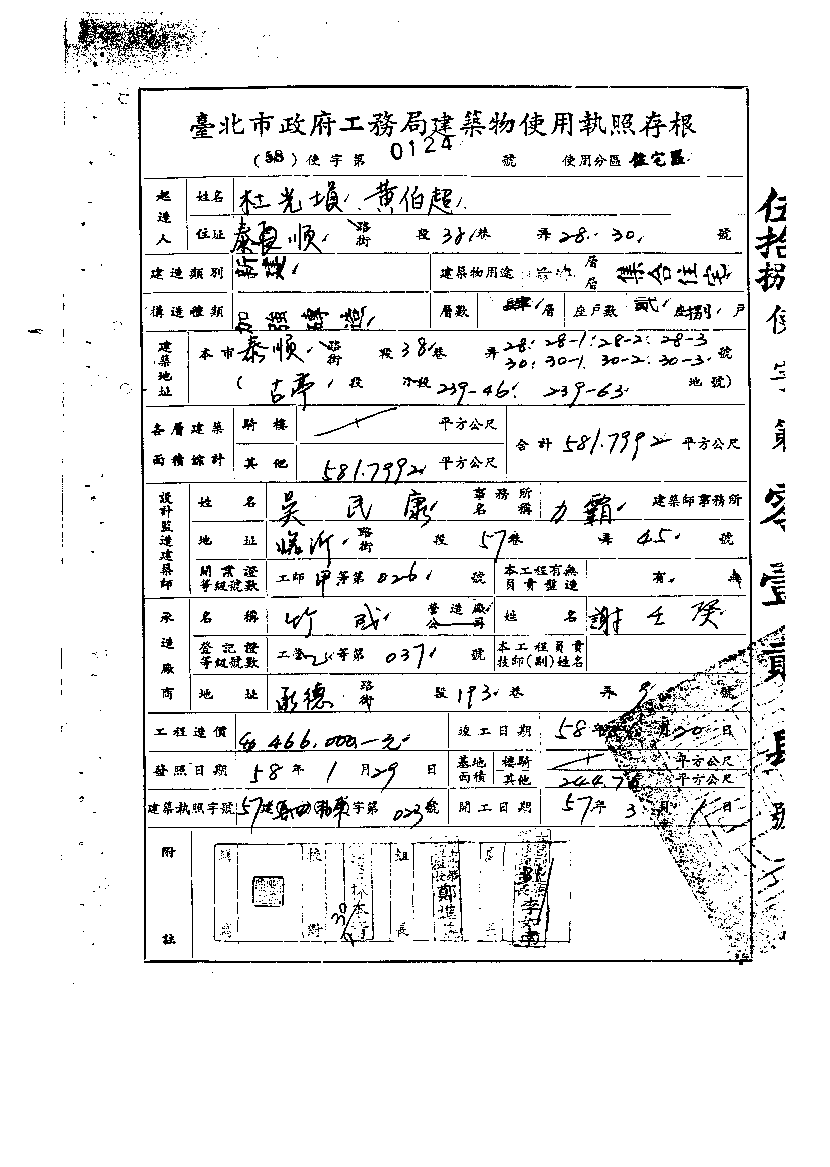 臺北市政府工務局建築物使用執照存根
(58)使字第 0124 號 使用分區 住宅區
起造人 姓名 杜光塤 黃伯超
住址 泰順 路街 段 38 巷 弄 28. 30. 號
建造類別 新建 建築物用途 層層 集合住宅
構造種類 加強磚造 層數 肆 層 座戶數 貳 座 捌 戶
建築地址 本市 泰順 路街 段 38 巷 弄 28. 28-1. 28-2. 28-3 30. 30-1. 30-2. 30-3. 號
(古亭 段 小段 239-46. 239-63. 地號)
各層建築面積總計 騎樓 平方公尺 合計 581.7992 平方公尺
其他 581.7992 平方公尺
設計監造建築師 姓名 吳民康 事務所名稱 力霸 建築師事務所
地址 臨沂 路街 段 57 巷 弄 45. 號
開業證等級號數 工師 甲 等第 026 號 本工程有無負責監造 有. 無
承造廠商 名稱 竹成 營造廠公司 姓名 謝壬癸
登記證等級號數 工登 乙 等第 037 號 本工程負責技師(副)姓名
地址 承德 路街 段 193 巷 弄 9 號
工程造價 466,000.—元 竣工日期 58 年 月 20 日
發照日期 58 年 1 月 29 日 基地面積 騎樓 平方公尺
其他 244.76 平方公尺
建築執照字號 57建 字第 023 號 開工日期 57 年 3 月 1 日
附註
校對 組長
鄭
李
伍拾捌使字第零壹貳肆號